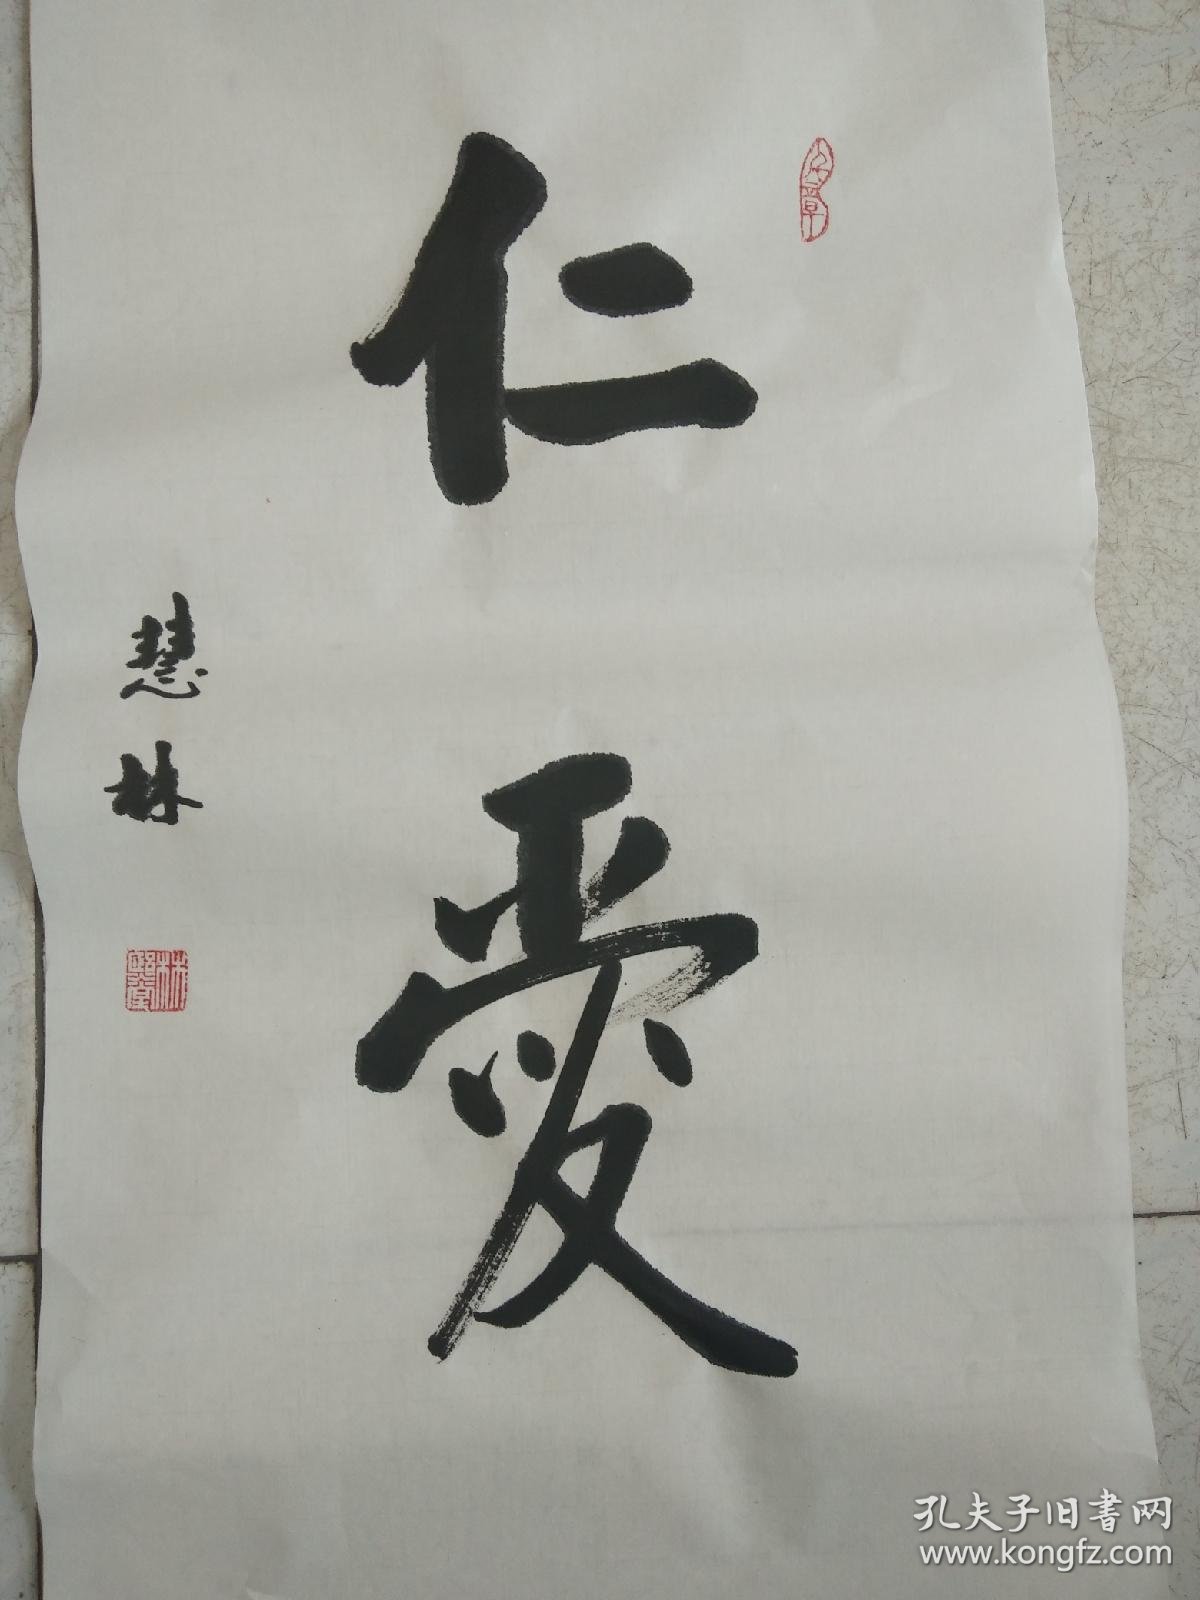 仁愛
慧林
孔夫子旧書网
www.kongfz.com